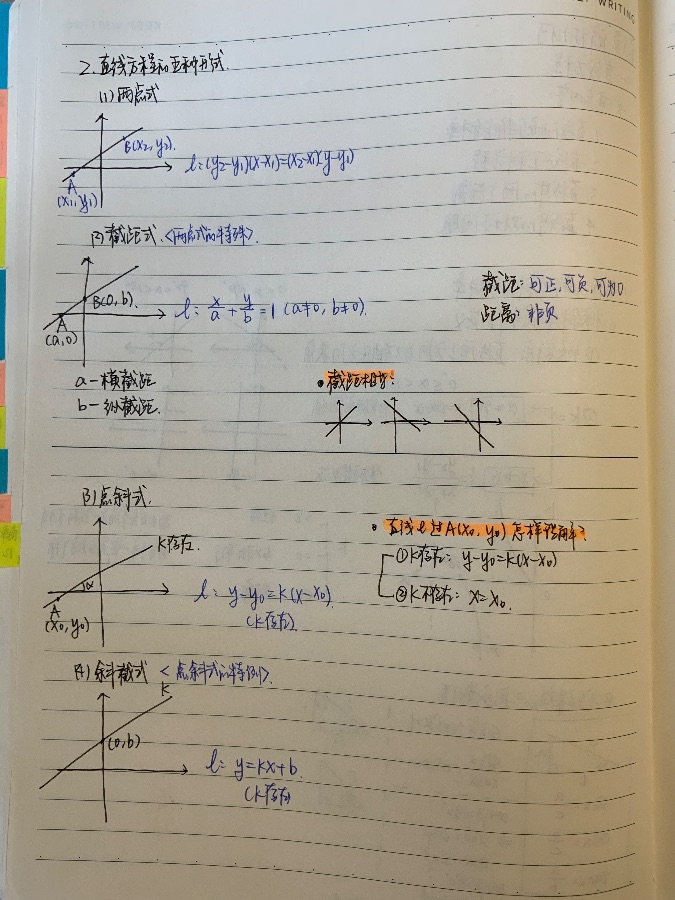 WRITING
2.直线方程的五种形式.
(1)两点式
B(x2,y2).
l:(y2-y1)(x-x1)=(x2-x1)(y-y1)
A
(x1,y1)
(2)截距式.<两点式的特殊>.
B(0,b).
l: x/a + y/b = 1 (a≠0, b≠0).
A
(a,0)
截距:可正,可负,可为0
距离:非负
a-横截距
b-纵截距.
截距相等:
(3)点斜式.
K存在.
α
A
(x0,y0)
l: y-y0=K(x-x0)
(K存在)
直线l过A(x0,y0)怎样设解率?
①K存在: y-y0=K(x-x0)
②K不存在: x=x0.
(4)斜截式 <点斜式的特例>.
K
(0,b)
l: y=Kx+b
(K存在)